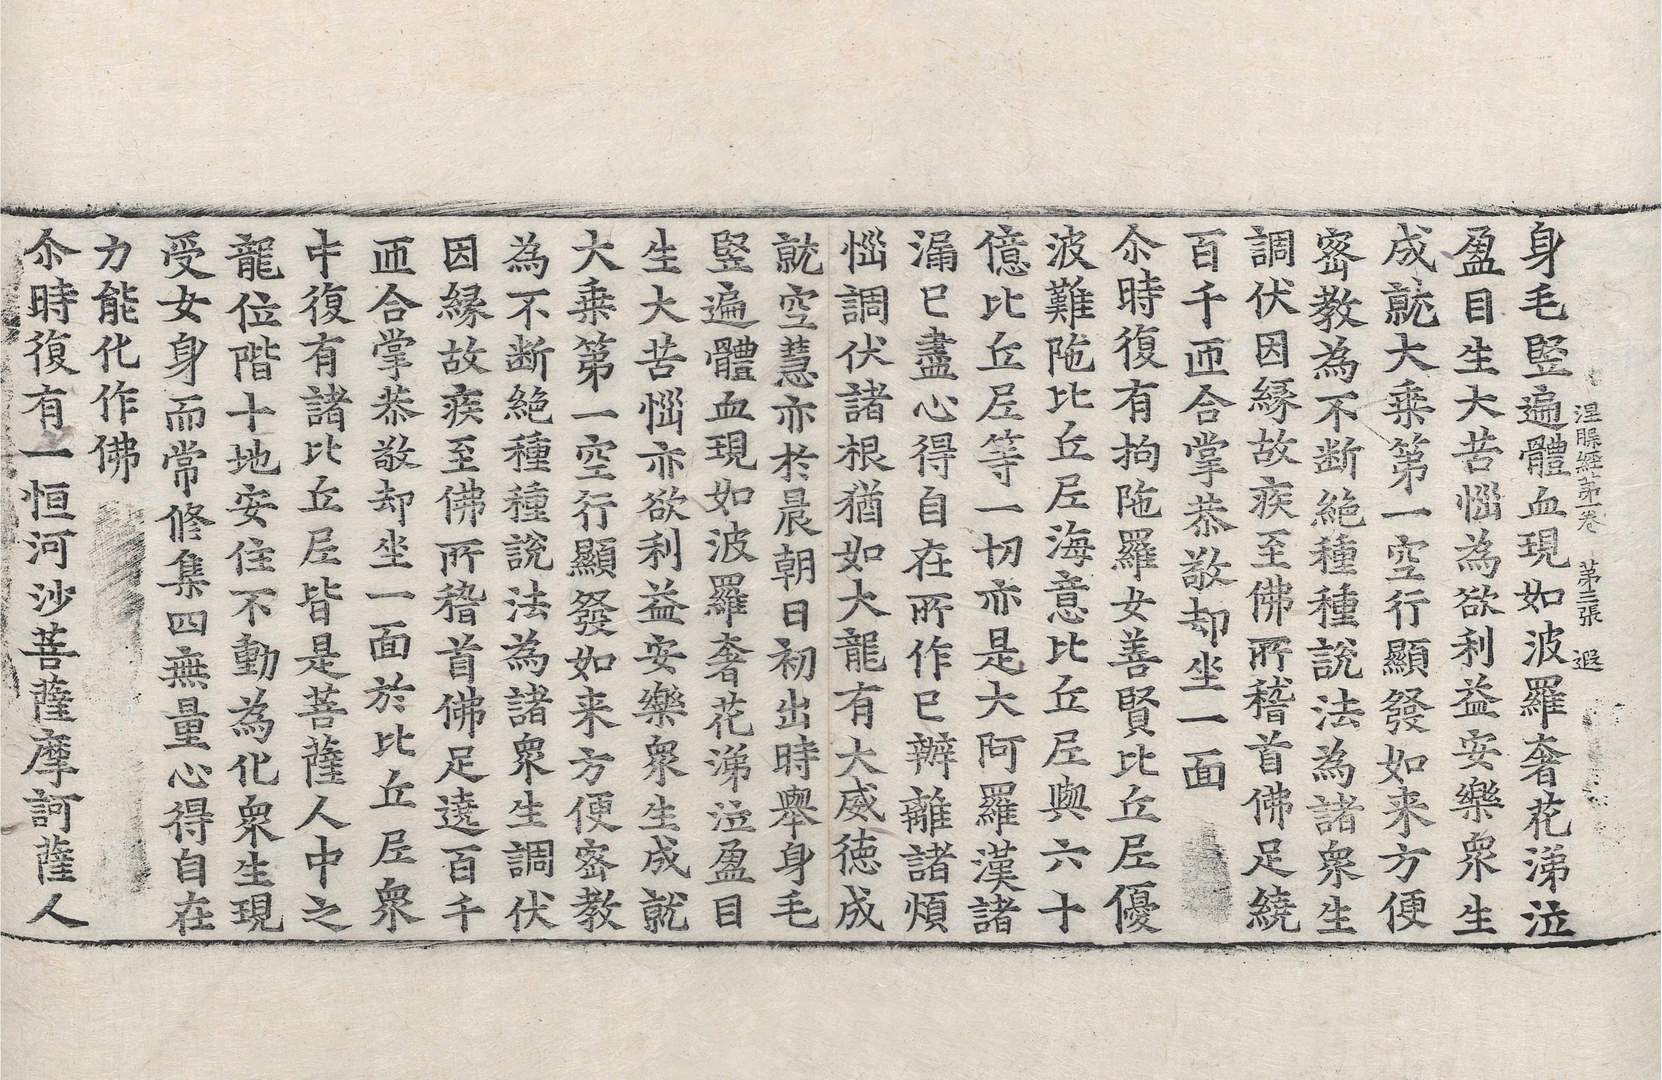 涅槃經第一卷 第三張 遐
身毛竪遍體血現如波羅奢花涕泣
盈目生大苦惱為欲利益安樂衆生
成就大乗第一空行顯發如来方便
密教為不断絶種種說法為諸衆生
調伏因縁故疾至佛所稽首佛足繞
百千匝合掌恭敬却坐一面
尒時復有拘陁羅女善賢比丘尼優
波難陁比丘尼海意比丘尼與六十
億比丘尼等一切亦是大阿羅漢諸
漏已盡心得自在所作已辦離諸煩
惱調伏諸根猶如大龍有大威徳成
就空慧亦於晨朝日初出時舉身毛
竪遍體血現如波羅奢花涕泣盈目
生大苦惱亦欲利益安樂衆生成就
大乗第一空行顯發如来方便密教
為不断絶種種說法為諸衆生調伏
因縁故疾至佛所稽首佛足遶百千
匝合掌恭敬却坐一面於比丘尼衆
中復有諸比丘尼皆是菩薩人中之
龍位階十地安住不動為化衆生現
受女身而常修集四無量心得自在
力能化作佛
尒時復有一恒河沙菩薩摩訶薩人